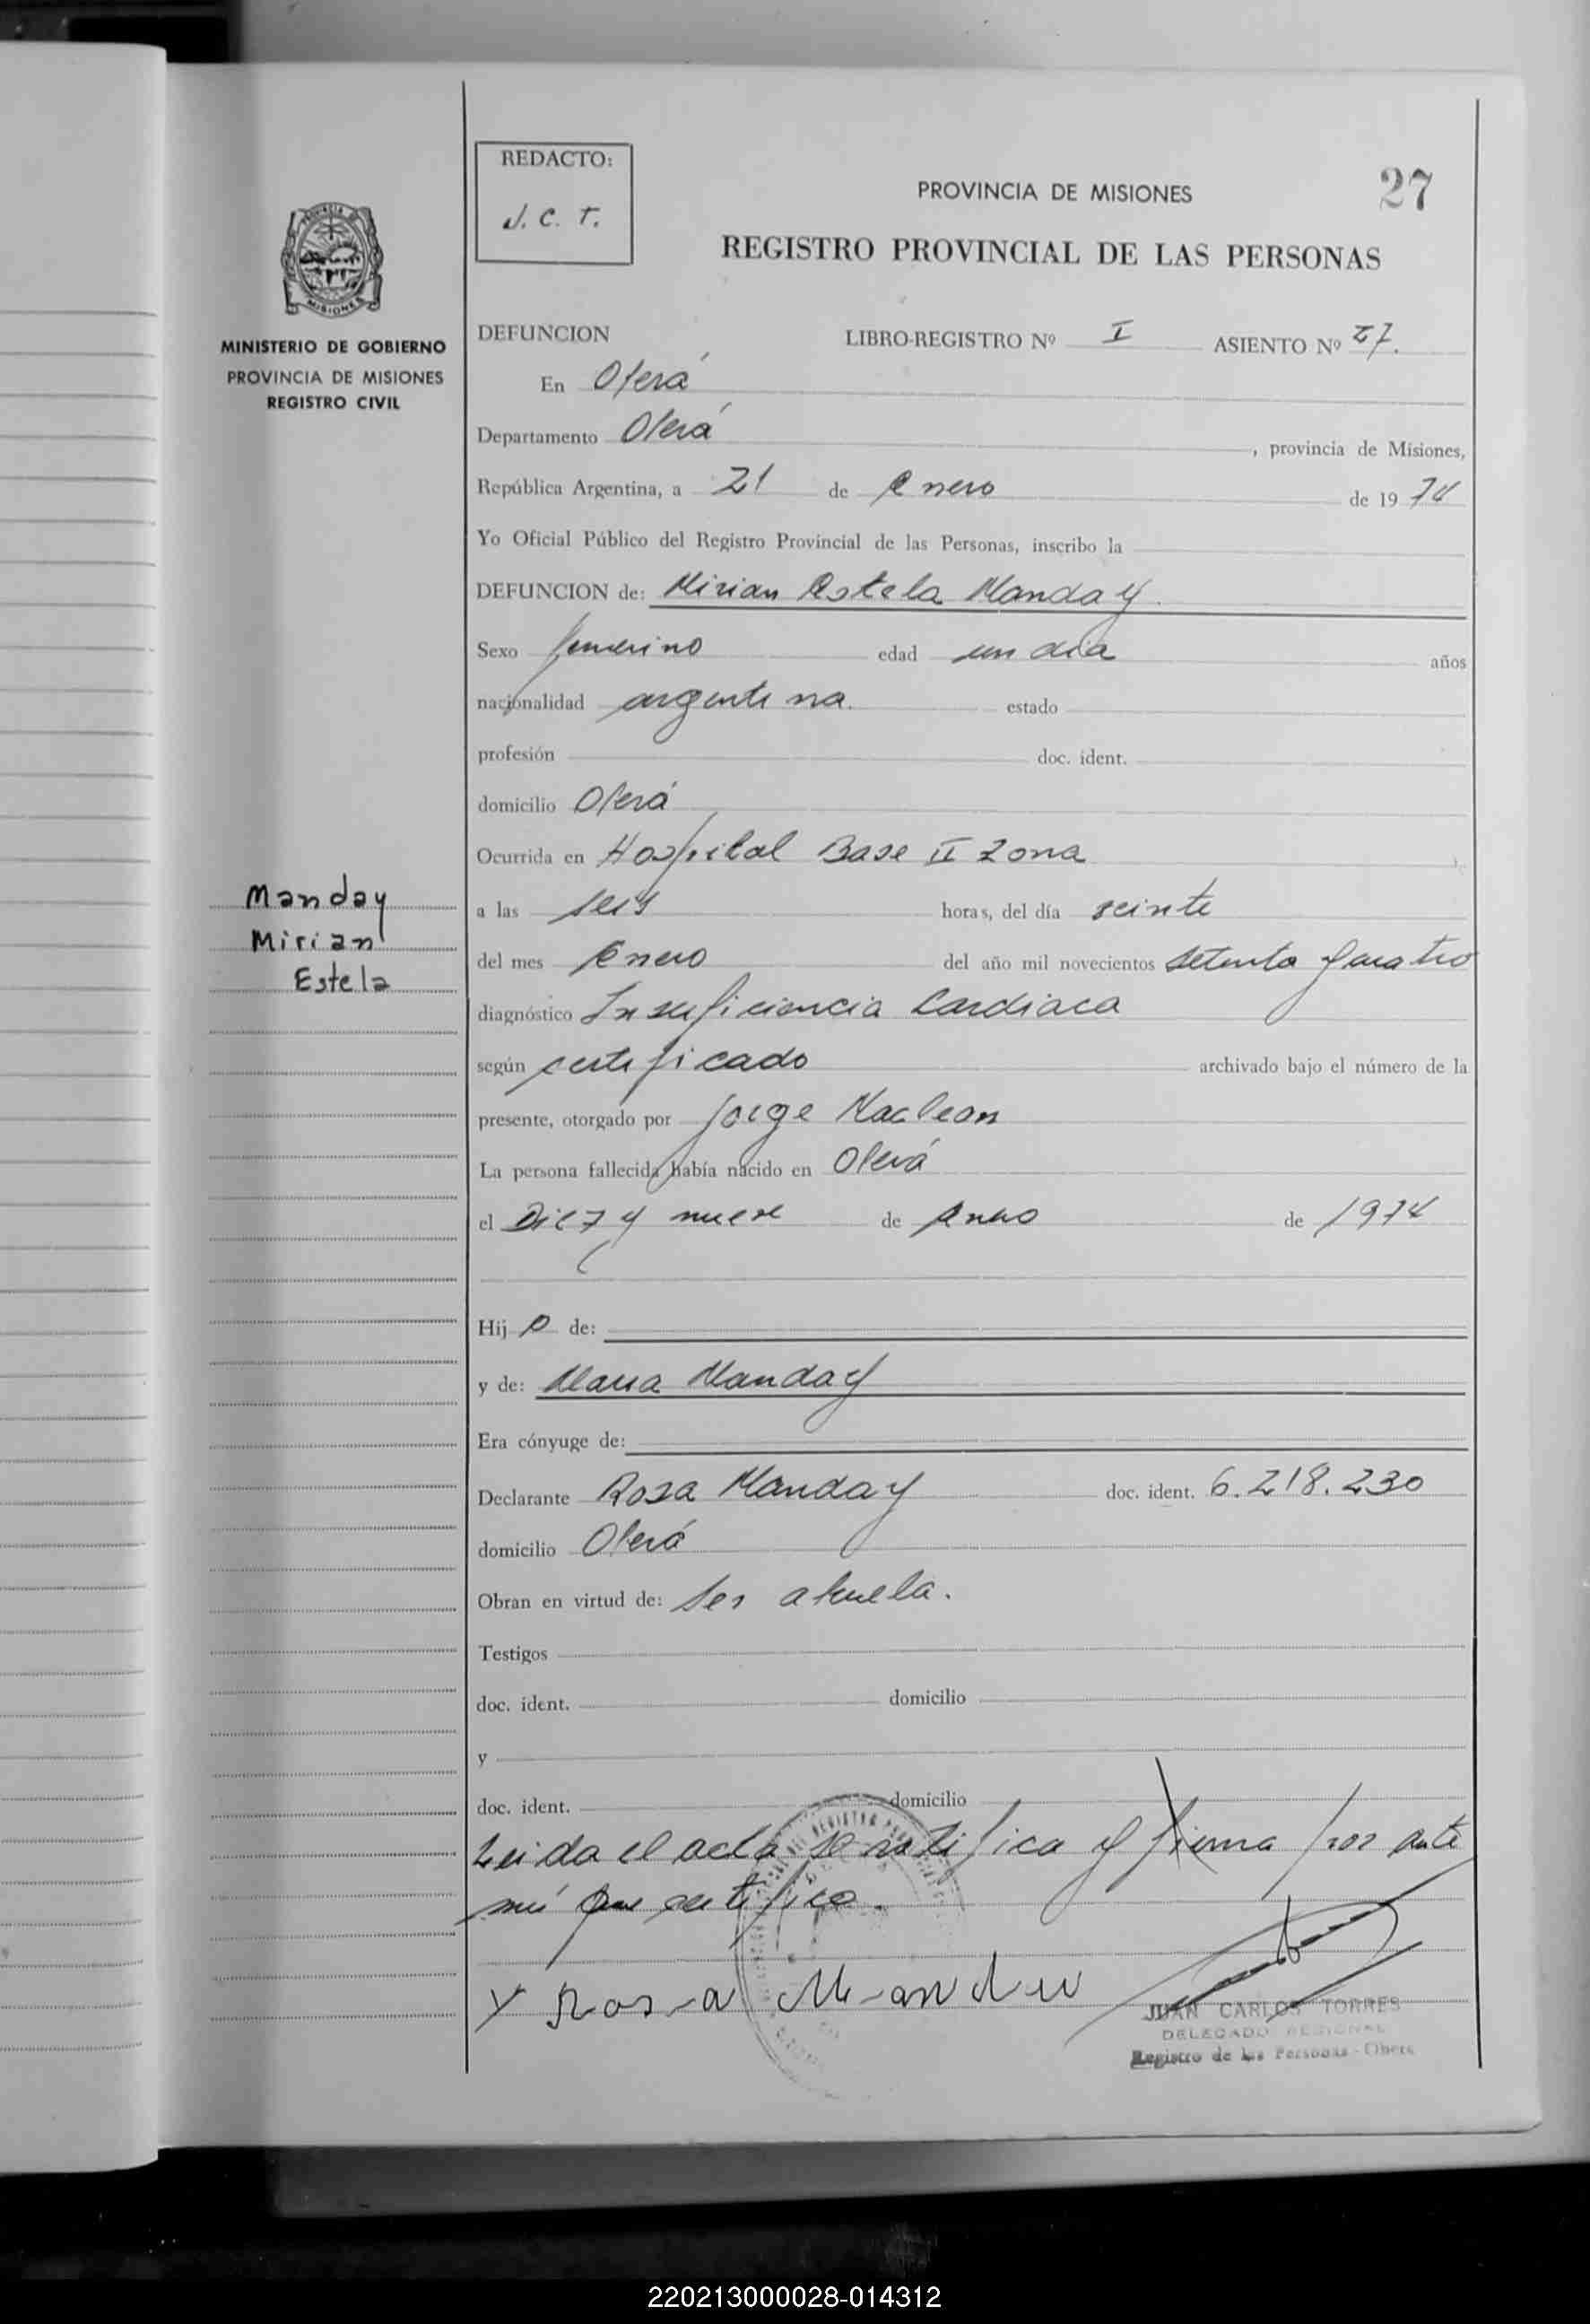 REDACTO:
J. C. T.
27
PROVINCIA DE MISIONES
REGISTRO PROVINCIAL DE LAS PERSONAS
MINISTERIO DE GOBIERNO
PROVINCIA DE MISIONES
REGISTRO CIVIL
DEFUNCION LIBRO-REGISTRO Nº I ASIENTO Nº 27.
En Oberá
Departamento Oberá, provincia de Misiones,
República Argentina, a 21 de Enero de 1974
Yo Oficial Público del Registro Provincial de las Personas, inscribo la
DEFUNCION de: Mirian Estela Manday.
Sexo femenino edad un día años
nacionalidad argentina. estado
profesión doc. ident.
domicilio Oberá
Ocurrida en Hospital Base II Zona
a las seis horas, del día veinte
del mes Enero del año mil novecientos setenta y cuatro
diagnóstico Insuficiencia Cardiaca
según certificado archivado bajo el número de la
presente, otorgado por Jorge Maclean
La persona fallecida había nacido en Oberá
el Diez y nueve de Enero de 1974
Hij a de:
y de: Maria Manday
Era cónyuge de:
Declarante Rosa Manday doc. ident. 6.218.230
domicilio Oberá
Obran en virtud de: Ser abuela.
Testigos
doc. ident. domicilio
y
doc. ident. domicilio
Leida el acta se ratifica y firma por ante
mí que certifico.
Rosa
JUAN CARLOS TORRES
DELEGADO REGIONAL
Registro de las Personas - Oberá
Manday
Mirian
Estela
PROVINCIA DE
MISIONES
220213000028-014312